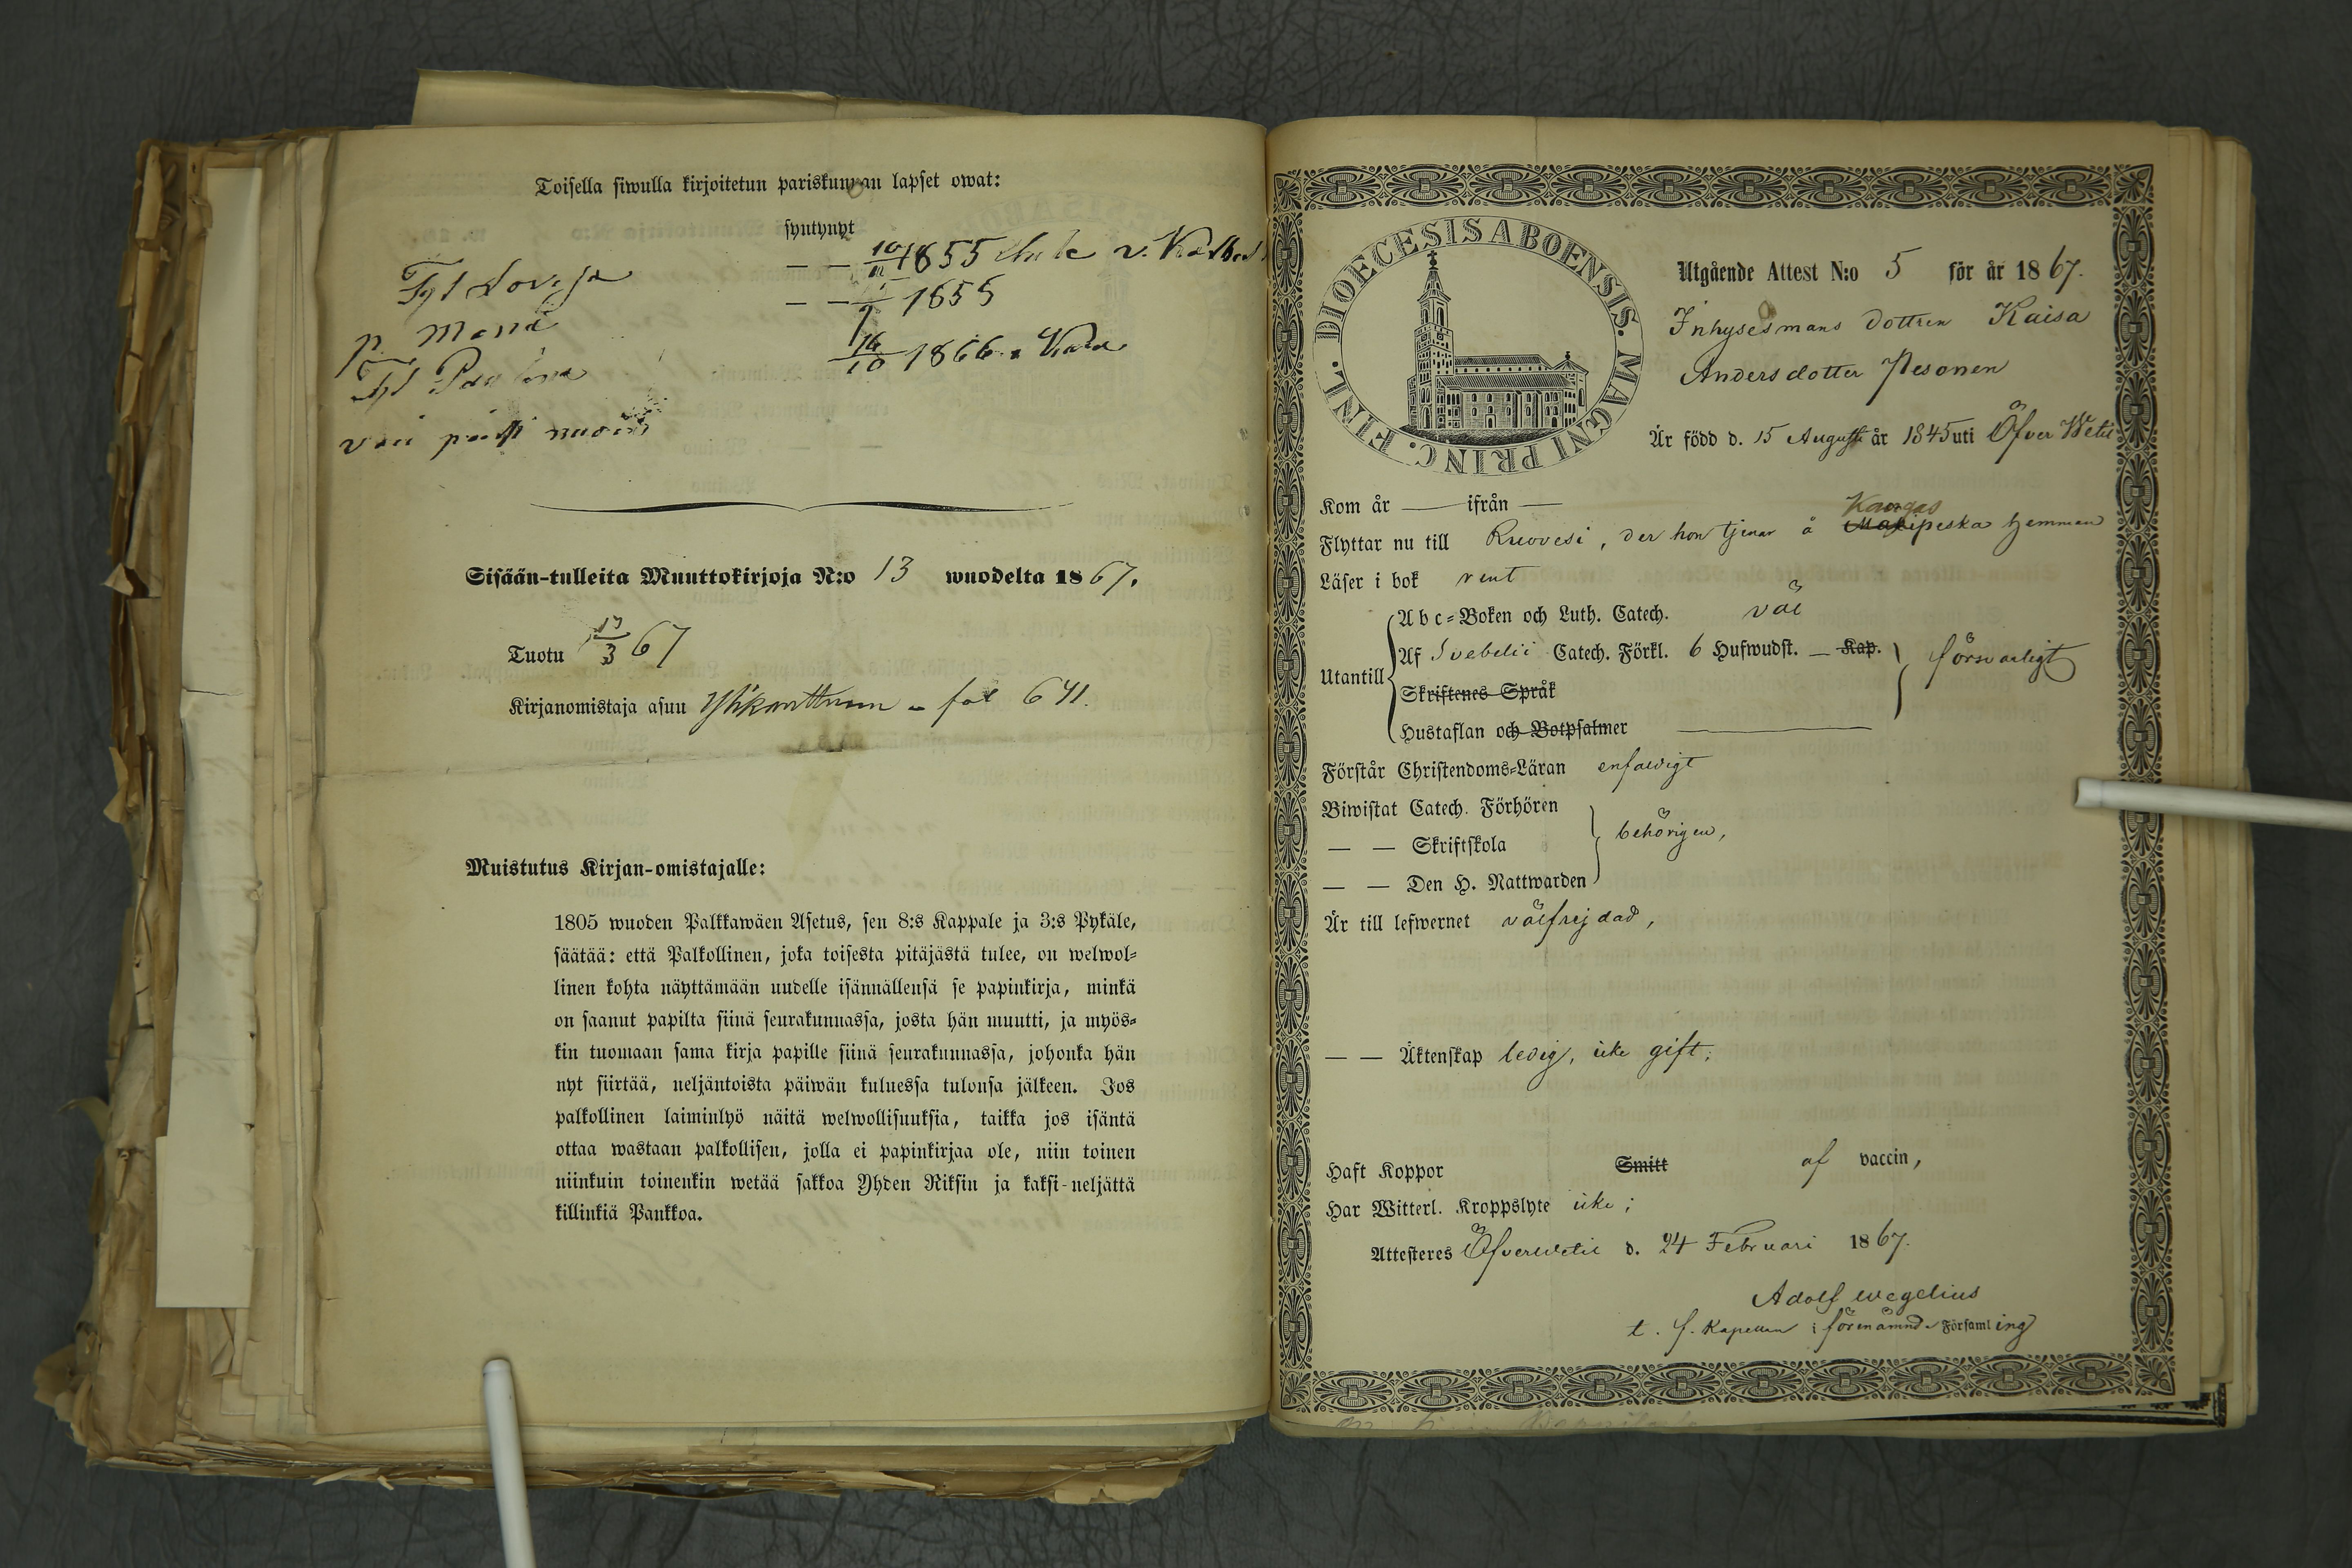 Toisella siwulla kirjoitetun pariskunnan lapset owat:
syntynyt
Tyt Lovisa — — 10/11 1855
p. — — 1858
Tyt 16/10 1866
Sisään-tulleita Muuttokirjoja N:o 13 wuodelta 1867.
Tuotu 17/3 67
Kirjanomistaja asuu fol 641.
Muistutus Kirjan-omistajalle:
1805 wuoden Palkkawäen Asetus, sen 8:s Kappale ja 3:s Pykäle,
säätää: että Palkollinen, joka toisesta pitäjästä tulee, on welwol-
linen kohta näyttämään uudelle isännällensä se papinkirja, minkä
on saanut papilta siinä seurakunnassa, josta hän muutti, ja myös-
kin tuomaan sama kirja papille siinä seurakunnassa, johonka hän
nyt siirtää, neljäntoista päiwän kuluessa tulonsa jälkeen. Jos
palkollinen laiminlyö näitä welwollisuuksia, taikka jos isäntä
ottaa wastaan palkollisen, jolla ei papinkirjaa ole, niin toinen
niinkuin toinenkin wetää sakkoa Yhden Riksin ja kaksi-neljättä
killinkiä Pankkoa.
DIOECESIS ABOENSIS. MAGNI PRINC. FINL.
Utgående Attest N:o 5 för år 1867.
Inhysesmans dottren Kaisa
Andersdotter Pesonen
Är född d. 15 Augusti år 1845 uti Öfver Wetil
Kom år — ifrån —
Kangas
Flyttar nu till Ruovesi, der hon tjenar å peska hemman
Läser i bok rent
Abc-Boken och Luth. Catech. väl
Utantill Af Svebelii Catech. Förkl. 6 Hufwudst. — Kap. försvarligt
Skriftenes Språk
Hustaflan och Botpsalmer —
Förstår Christendoms-Läran enfaldigt
Biwistat Catech. Förhören
— — Skriftskola behörigen,
— — Den H. Nattwarden
Är till lefwernet välfrejdad,
— — Äktenskap ledig, icke gift;
Haft Koppor Smitt af vaccin,
Har Witterl. Kroppslyte icke;
Attesteres Öfverwetil d. 24 Februari 1867.
Adolf Wegelius
t. f. Kapellan i förenämnde Församling